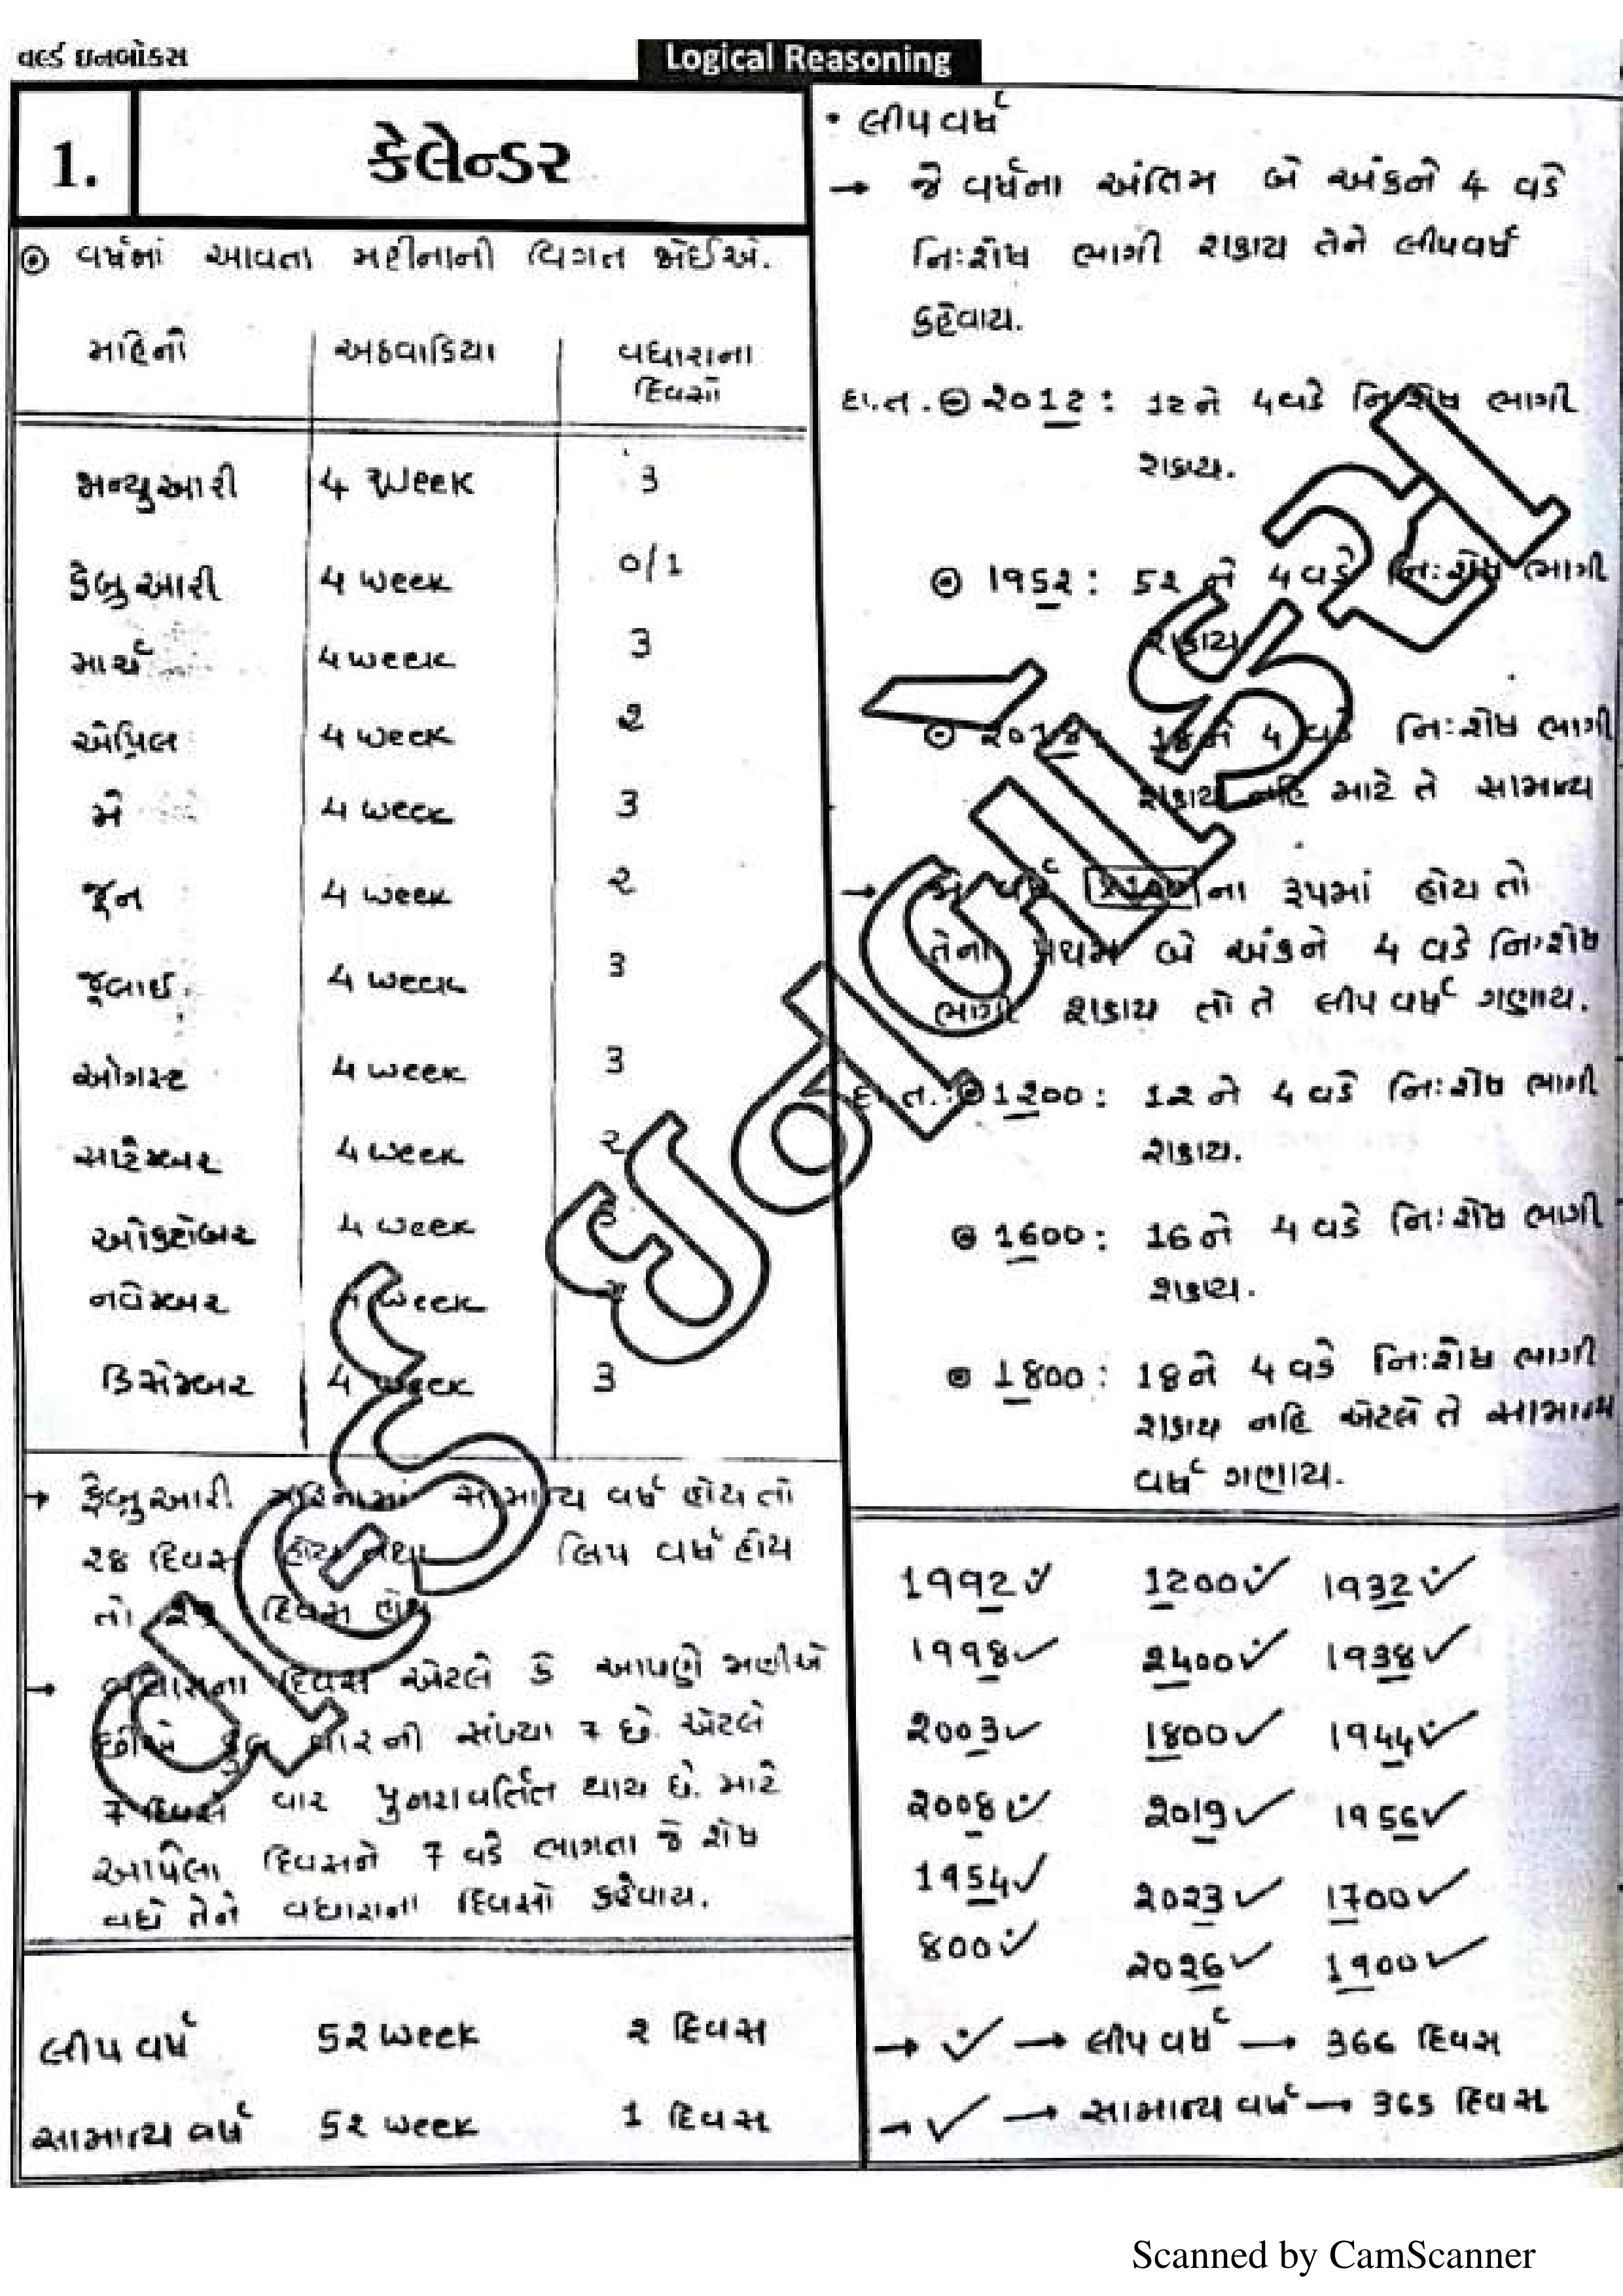 વર્લ્ડ ઇનબોક્સ
Logical Reasoning
1.
કેલેન્ડર
વર્ષમાં આવતા મહીનાની વિગત જોઈએ.
મહિનો અઠવાડિયા વધારાના
દિવસો
જાન્યુઆરી 4 week 3
ફેબ્રુઆરી 4 week 0/1
માર્ચ 4 week 3
એપ્રિલ 4 week 2
મે 4 week 3
જૂન 4 week 2
જૂલાઈ 4 week 3
ઓગસ્ટ 4 week 3
સપ્ટેમ્બર 4 week 2
ઓક્ટોબર 4 week
નવેમ્બર week
ડિસેમ્બર 4 week 3
→ ફેબ્રુઆરી મહિનામાં સામાન્ય વર્ષ હોય તો
૨8 દિવસ લિપ વર્ષ હોય
તો દિવસ હોય
→ વધારાના દિવસ એટલે કે આપણે જાણીએ
છીએ કુલ વારની સંખ્યા 7 છે. એટલે
7 દિવસે વાર પુનરાવર્તિત થાય છે. માટે
આપેલા દિવસને 7 વડે ભાગતા જે શેષ
વધે તેને વધારાના દિવસો કહેવાય.
લીપ વર્ષ 5૨ week ૨ દિવસ
સામાન્ય વર્ષ 5૨ week 1 દિવસ
• લીપ વર્ષ
→ જે વર્ષના અંતિમ બે અંકને 4 વડે
નિઃશેષ ભાગી શકાય તેને લીપવર્ષ
કહેવાય.
દા.ત. ૨01૨ : 1૨ને 4 વડે નિઃશેષ ભાગી
શકાય.
195૨ : 5૨ ને 4 વડે નિઃશેષ ભાગી
શકાય
૨018 : 18ને 4 વડે નિઃશેષ ભાગી
શકાય નહિ માટે તે સામાન્ય
→ જો વર્ષ ના રૂપમાં હોય તો
તેના પ્રથમ બે અંકને 4 વડે નિઃશેષ
ભાગી શકાય તો તે લીપ વર્ષ ગણાય.
દા.ત. : 1૨00 : 1૨ ને 4 વડે નિઃશેષ ભાગી
શકાય.
1600 : 16ને 4 વડે નિઃશેષ ભાગી
શકાય.
1800 : 18ને 4 વડે નિઃશેષ ભાગી
શકાય નહિ એટલે તે સામાન્ય
વર્ષ ગણાય.
199૨ 1૨00 193૨
1998 ૨400 1938
૨003 1800 1944
૨008 ૨019 1956
1954 ૨0૨3 1700
800 ૨0૨6 1900
→ ✓ → લીપ વર્ષ → 366 દિવસ
→ ✓ → સામાન્ય વર્ષ → 365 દિવસ
વર્લ્ડ ઇનબોક્સ
Scanned by CamScanner